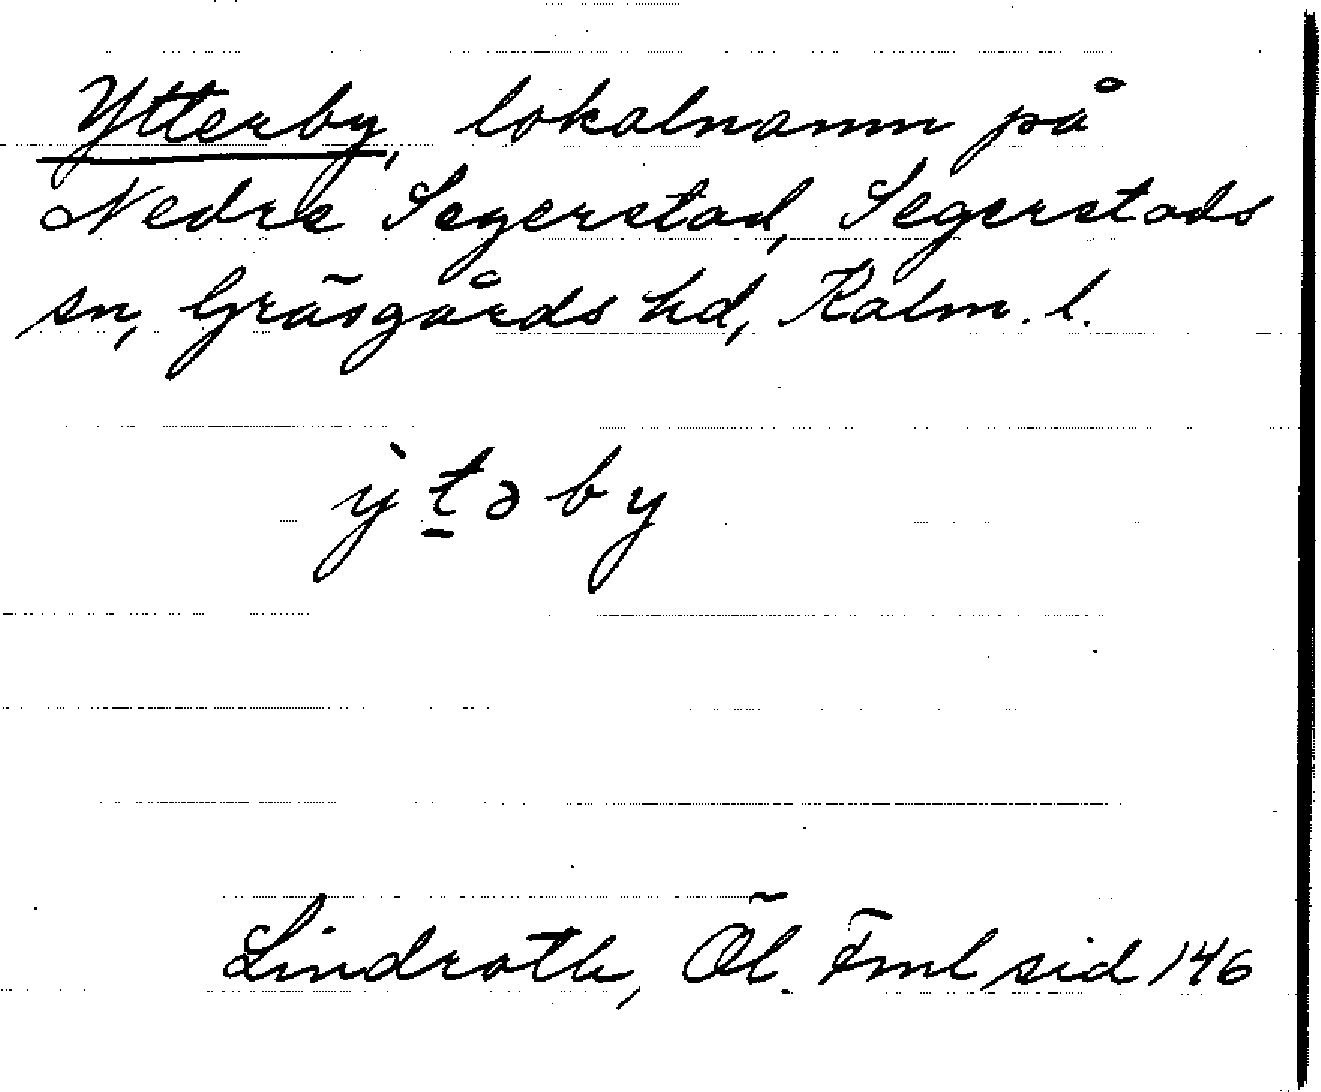 Ytterby, lokalnamn på
Nedre Segerstad, Segerstads
sn, Gräsgårds hd, Kalm. l.
ỳt̲əby
Lindroth, Öl. Fml sid 146